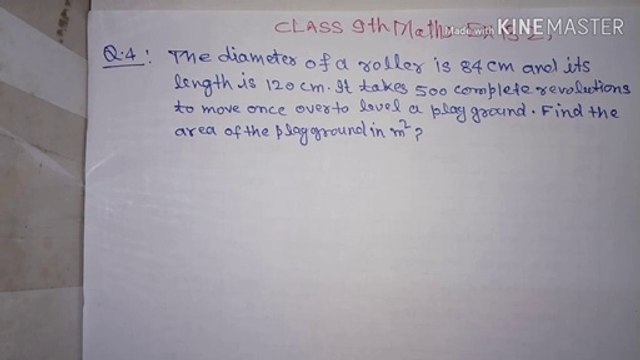 CLASS 9th Maths Ex 13.2,
Made with KINEMASTER
Q.4: The diameter of a roller is 84 cm and its
length is 120 cm. It takes 500 complete revolutions
to move once over to level a play ground. Find the
area of the playground in m²?